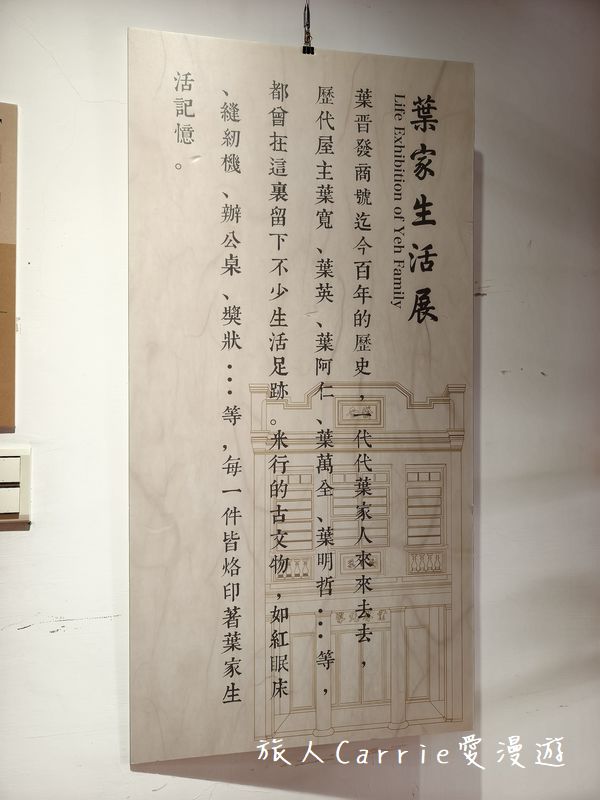 葉家生活展
Life Exhibition of Yeh Family
葉晋發商號迄今百年的歷史，一代代葉家人來來去去，
歷代屋主葉寬、葉英、葉阿仁、葉萬全、葉明哲…等，
都曾在這裏留下不少生活足跡。米行的古文物，如紅眠床
、縫紉機、辦公桌、獎狀…等，每一件皆烙印著葉家生
活記憶。
旅人Carrie愛漫遊